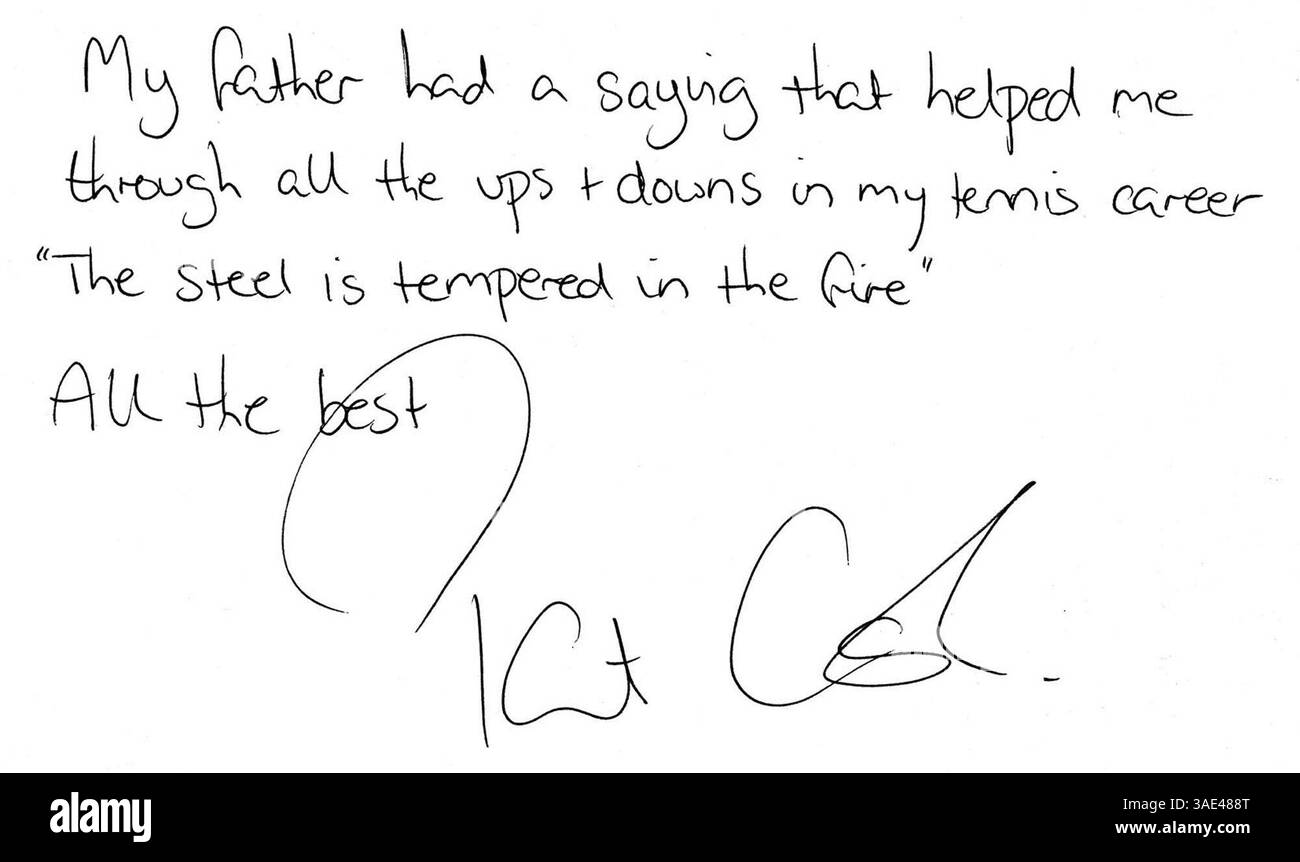 My father had a saying that helped me
through all the ups + downs in my tennis career
"The steel is tempered in the fire"
All the best
Pat Cash
alamy
Image ID: 3AE488T
www.alamy.com